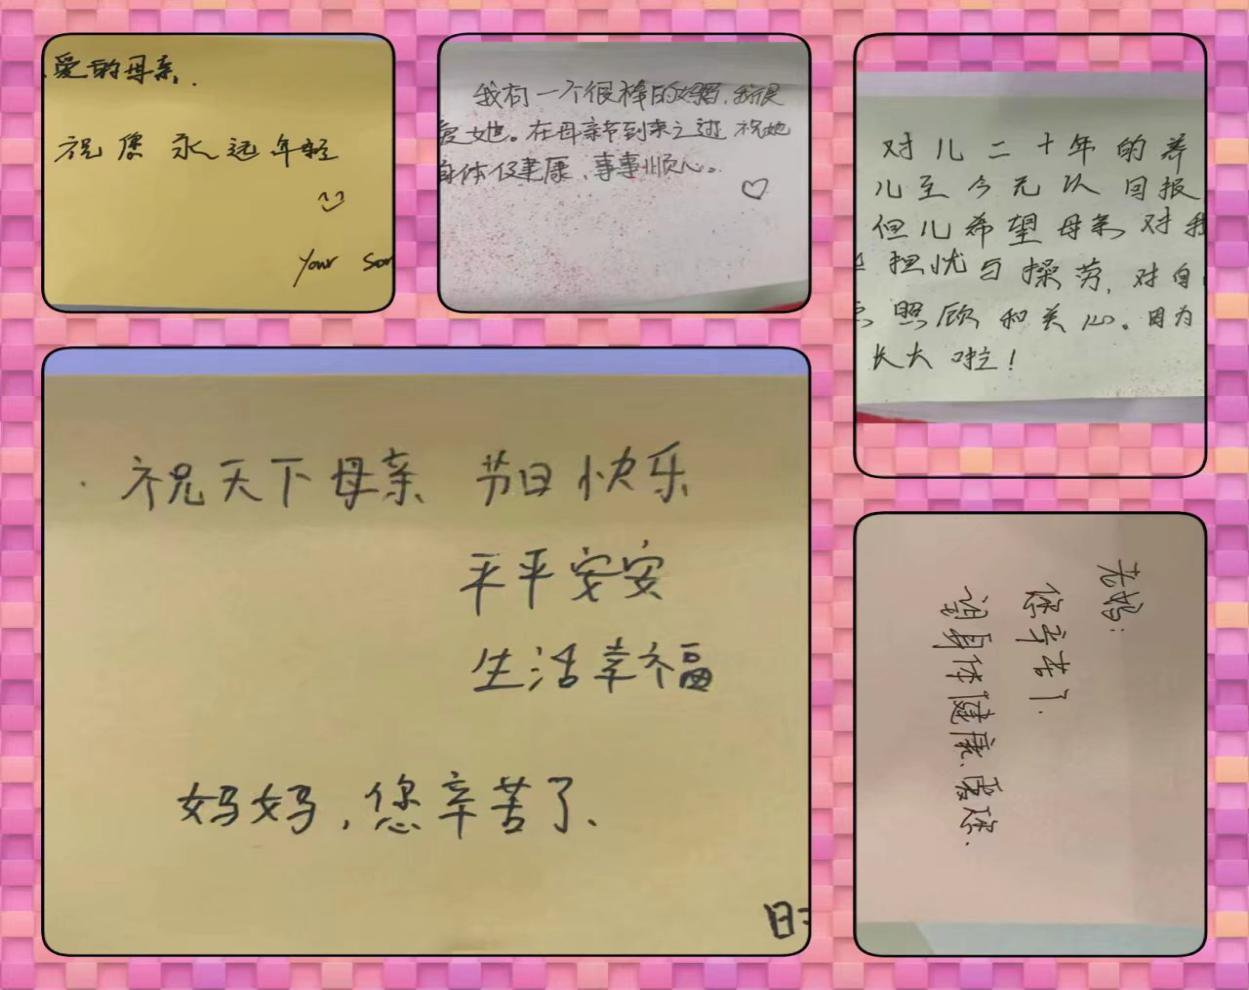 爱的母亲.
祝您永远年轻
Your Son
我有一个很棒的妈妈,我很
爱她。在母亲节到来之 祝她
身体健康、事事顺心。
对儿二十年的养
儿至今无以回报
但儿希望母亲对我
担忧与操劳,对自
照顾和关心。因为
长大啦!
祝天下母亲 节日快乐
平平安安
生活幸福
妈妈,您辛苦了、
日
老妈:
您辛苦了.
身体健康、爱您.